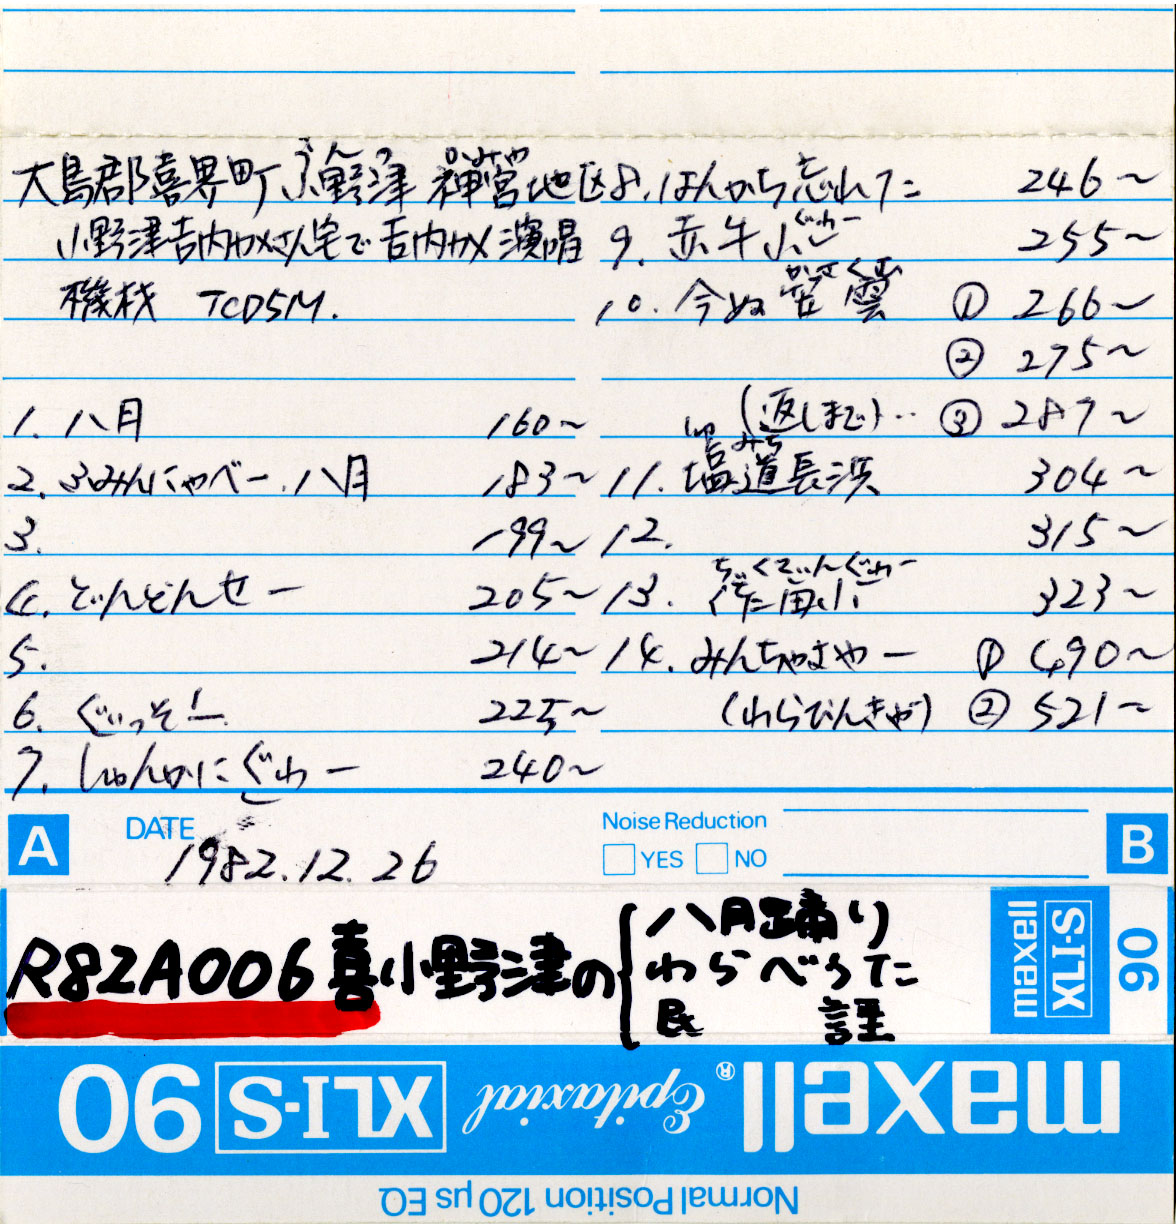 大島郡喜界町小野津 神宮地区
小野津吉内カメさん宅で吉内カメ演唱
機材 TCD5M.
1. 八月 160〜
2. ふみんにゃべー八月 183〜
3. 199〜
4. どんどんせー 205〜
5. 214〜
6. ぐいっそー 225〜
7. しゅんかにぐゎー 240〜
8. はんから忘れてた 246〜
9. 赤牛小 ぐゎー 255〜
10. 今ぬ笠雲 かさくむ ① 266〜
② 275〜
(返しまで)‥ ③ 287〜
11. 塩道長浜 しゅみち 304〜
12. 315〜
13. 323〜
14. みんちゃまやー ① 490〜
(わらびんきゃ) ② 521〜
A DATE Noise Reduction B
1982.12.26 YES NO
R82A006 喜 小野津の
八月踊り
わらべうた
民 謡
maxell XLI-S 90
maxell® Epitaxial XLI-S 90
Normal Position 120 µs EQ